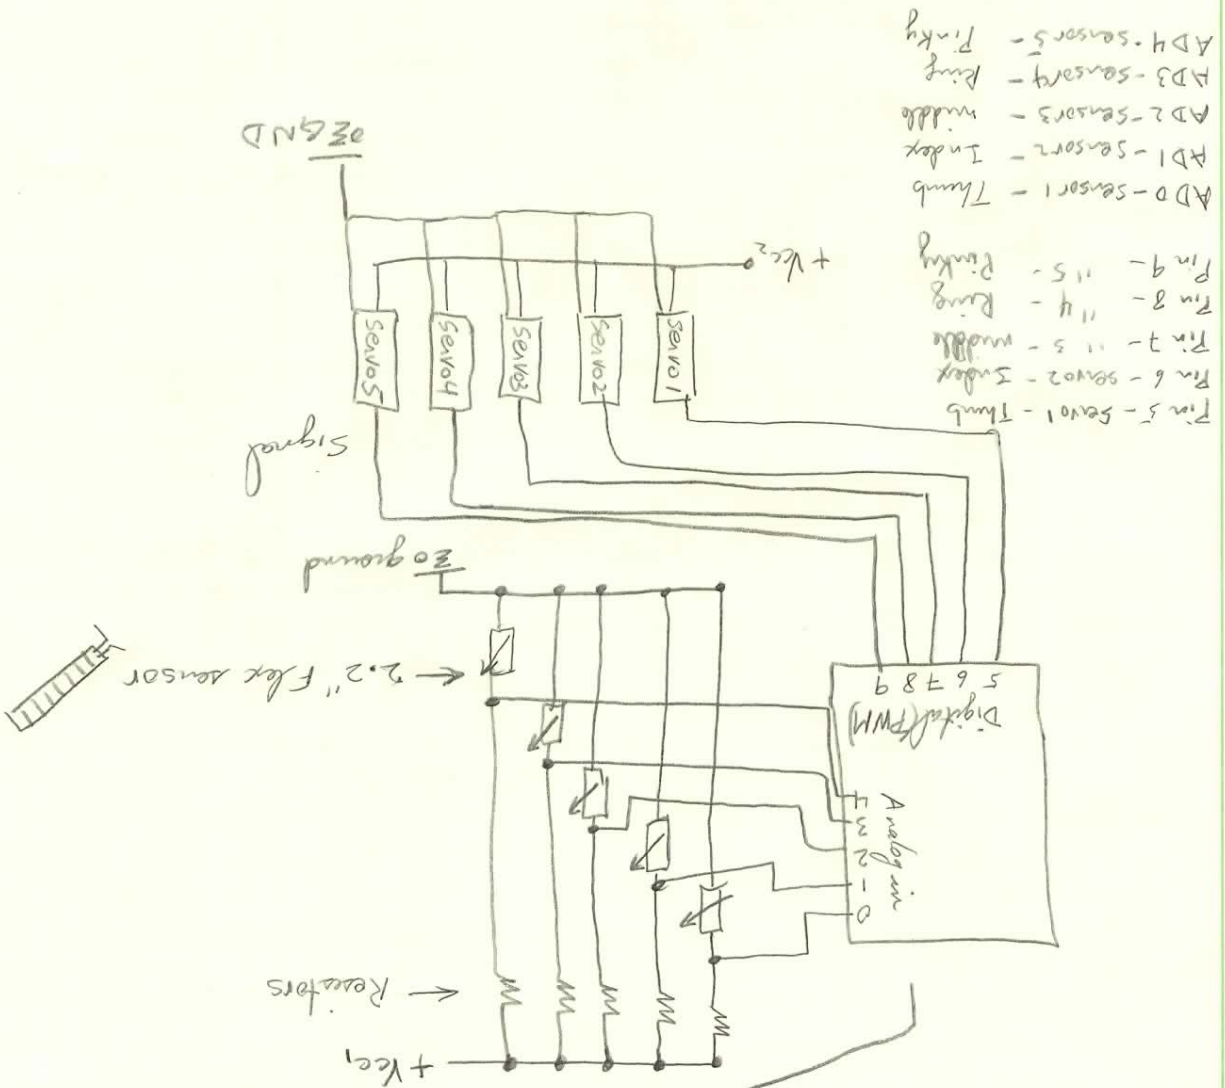 +Vcc1
← Resistors
Analog in
0
1
2
3
4
Digital (PWM)
5 6 7 8 9
← 2.2" Flex sensor
ground
Signal
Servo1
Servo2
Servo3
Servo4
Servo5
+Vcc2
GND
Pin 5 - Servo1 - Thumb
Pin 6 - Servo2 - Index
Pin 7 - " 3 - middle
Pin 8 - " 4 - Ring
Pin 9 - " 5 - Pinky
AD0 - Sensor1 - Thumb
AD1 - Sensor2 - Index
AD2 - Sensor3 - middle
AD3 - Sensor4 - Ring
AD4 - Sensor5 - Pinky